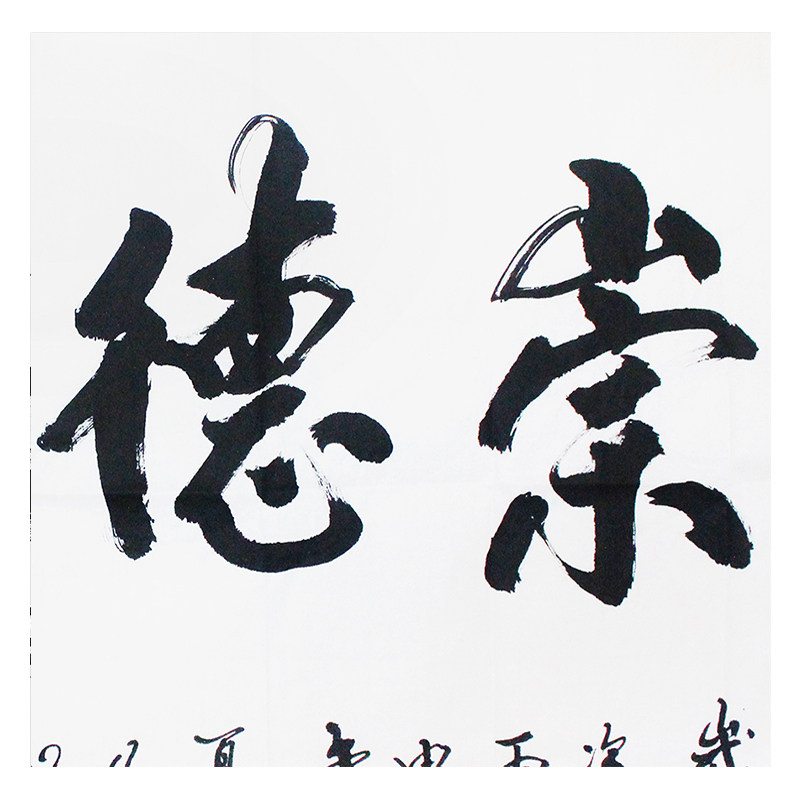 崇德
歲次丙申年夏